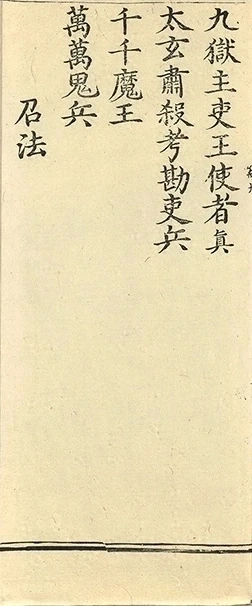 九獄主吏王使者真
太玄肅殺考勘吏兵
千千魔王
萬萬鬼兵
召法